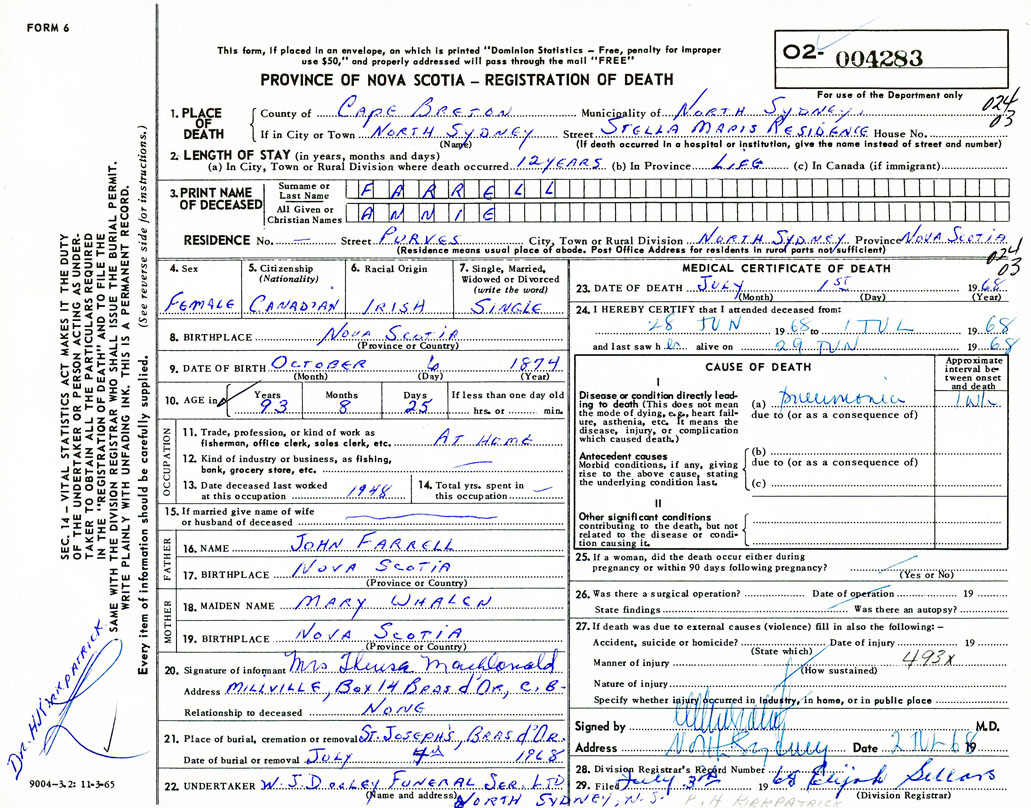 FORM 6
This form, if placed in an envelope, on which is printed "Dominion Statistics – Free, penalty for improper
use $50," and properly addressed will pass through the mail "FREE"
PROVINCE OF NOVA SCOTIA – REGISTRATION OF DEATH
02- 004283
For use of the Department only
024
03
1. PLACE OF DEATH
County of CAPE BRETON Municipality of NORTH SYDNEY.
If in City or Town NORTH SYDNEY Street STELLA MARIS RESIDENCE House No.
(Name) (If death occurred in a hospital or institution, give the name instead of street and number)
2. LENGTH OF STAY (in years, months and days)
(a) In City, Town or Rural Division where death occurred 12 YEARS (b) In Province LIFE (c) In Canada (if immigrant)
3. PRINT NAME OF DECEASED
Surname or Last Name FARRELL
All Given or Christian Names ANNIE
RESIDENCE No. — Street PURVES City, Town or Rural Division NORTH SYDNEY Province NOVA SCOTIA
(Residence means usual place of abode. Post Office Address for residents in rural parts not sufficient)
024
03
4. Sex
FEMALE
5. Citizenship
(Nationality)
CANADIAN
6. Racial Origin
IRISH
7. Single, Married,
Widowed or Divorced
(write the word)
SINGLE
8. BIRTHPLACE NOVA SCOTIA
(Province or Country)
9. DATE OF BIRTH OCTOBER 6 1874
(Month) (Day) (Year)
10. AGE in
Years Months Days If less than one day old
93 8 25 hrs. or min.
OCCUPATION
11. Trade, profession, or kind of work as
fisherman, office clerk, sales clerk, etc. AT HOME
12. Kind of industry or business, as fishing,
bank, grocery store, etc. —
13. Date deceased last worked
at this occupation 1948
14. Total yrs. spent in
this occupation —
15. If married give name of wife
or husband of deceased
FATHER
16. NAME JOHN FARRELL
17. BIRTHPLACE NOVA SCOTIA
(Province or Country)
MOTHER
18. MAIDEN NAME MARY WHALEN
19. BIRTHPLACE NOVA SCOTIA
(Province or Country)
20. Signature of informant Mrs Theresa MacDonald
Address MILLVILLE, BOX 14 BRAS d'OR, C.B-
Relationship to deceased NONE
21. Place of burial, cremation or removal ST. JOSEPH'S, BRAS d'OR.
Date of burial or removal JULY 4th 1968
22. UNDERTAKER W.J. DOOLEY FUNERAL SER. LTD
(Name and address) NORTH SYDNEY, N.S.
MEDICAL CERTIFICATE OF DEATH
23. DATE OF DEATH JULY 1ST 1968
(Month) (Day) (Year)
24. I HEREBY CERTIFY that I attended deceased from:
28 JUN 1968 to 1 JUL 1968
and last saw her alive on 29 JUN 1968
CAUSE OF DEATH
Approximate
interval be-
tween onset
and death
I
Disease or condition directly lead-
ing to death (This does not mean
the mode of dying, e.g., heart fail-
ure, asthenia, etc. It means the
disease, injury, or complication
which caused death.)
(a) Pneumonia 1 wk
due to (or as a consequence of)
Antecedent causes
Morbid conditions, if any, giving
rise to the above cause, stating
the underlying condition last.
(b)
due to (or as a consequence of)
(c)
II
Other significant conditions
contributing to the death, but not
related to the disease or condi-
tion causing it.
25. If a woman, did the death occur either during
pregnancy or within 90 days following pregnancy?
(Yes or No)
26. Was there a surgical operation? Date of operation 19
State findings Was there an autopsy?
27. If death was due to external causes (violence) fill in also the following: –
Accident, suicide or homicide? Date of injury 19
(State which)
Manner of injury 493x
(How sustained)
Nature of injury
Specify whether injury occurred in industry, in home, or in public place
Signed by M.D.
Address North Sydney Date 2 JUL 68 19
28. Division Registrar's Record Number
29. Filed July 3rd 1968 Elijah Sellars
(Division Registrar)
P H KIRKPATRICK
SEC. 14 – VITAL STATISTICS ACT MAKES IT THE DUTY
OF THE UNDERTAKER OR PERSON ACTING AS UNDER-
TAKER TO OBTAIN ALL THE PARTICULARS REQUIRED
IN THE "REGISTRATION OF DEATH" AND TO FILE THE
SAME WITH THE DIVISION REGISTRAR WHO SHALL ISSUE THE BURIAL PERMIT.
WRITE PLAINLY WITH UNFADING INK. THIS IS A PERMANENT RECORD.
Every item of information should be carefully supplied. (See reverse side for instructions.)
DR. H KIRKPATRICK
9004-3.2: 11-3-65